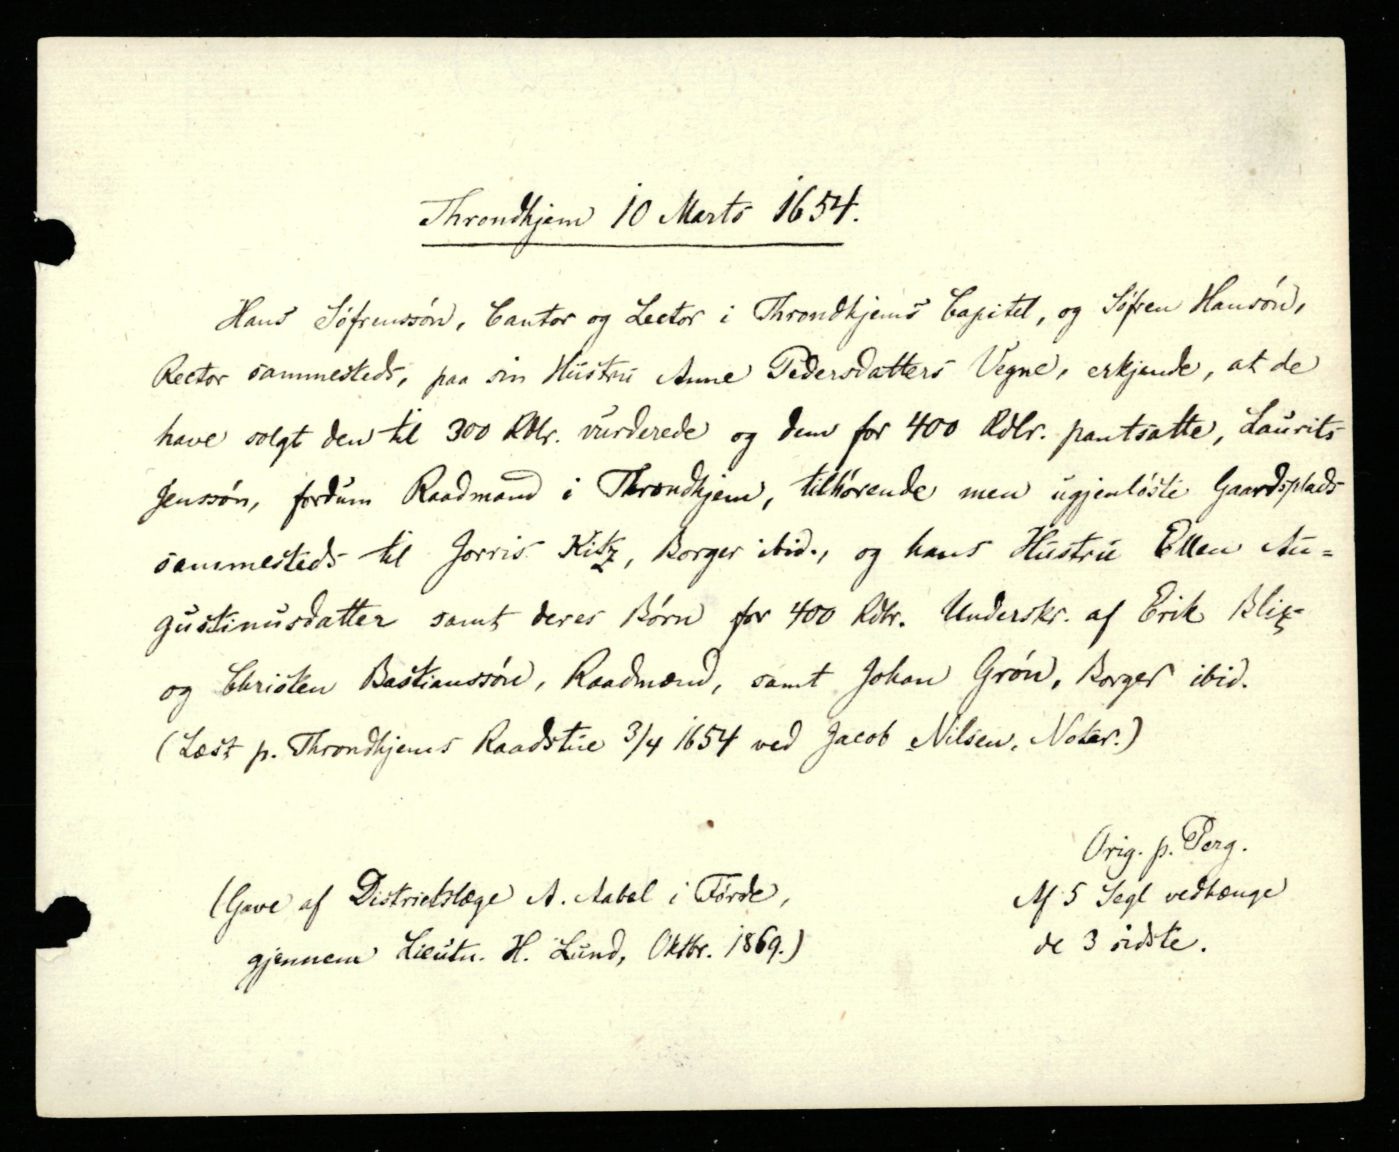 Throndhjem 10 Marts 1654.
Hans Söfrenssön, Cantor og Lector i Throndhjems Capitel, og Söfren Hansön,
Rector sammesteds, paa sin Hustru Anne Pedersdatters Vegne, erkjende, at de
have solgt den til 300 Rdlr. vurderede og dem for 400 Rdlr. pantsatte, Laurits
Jenssön, fordum Raadmand i Throndhjem, tilhörende men ugjenlöste Gaardsplads
sammesteds til Jorris Kitz, Borger ibid., og hans Hustru Ellen Au=
gustinusdatter samt deres Börn for 400 Rdlr. Underskr. af Erik Blix
og Christen Bastianssön, Raadmænd, samt Johan Grön, Borger ibid.
(Læst p. Throndhjems Raadstue 3/4 1654 ved Jacob Nilsen, Notar.)
Orig. p. Perg.
Af 5 Segl vedhænge
de 3 sidste.
(Gave af Districtslæge A. Aabel i Förde,
gjennem Lieutn. H. Lund, Oktbr. 1869.)